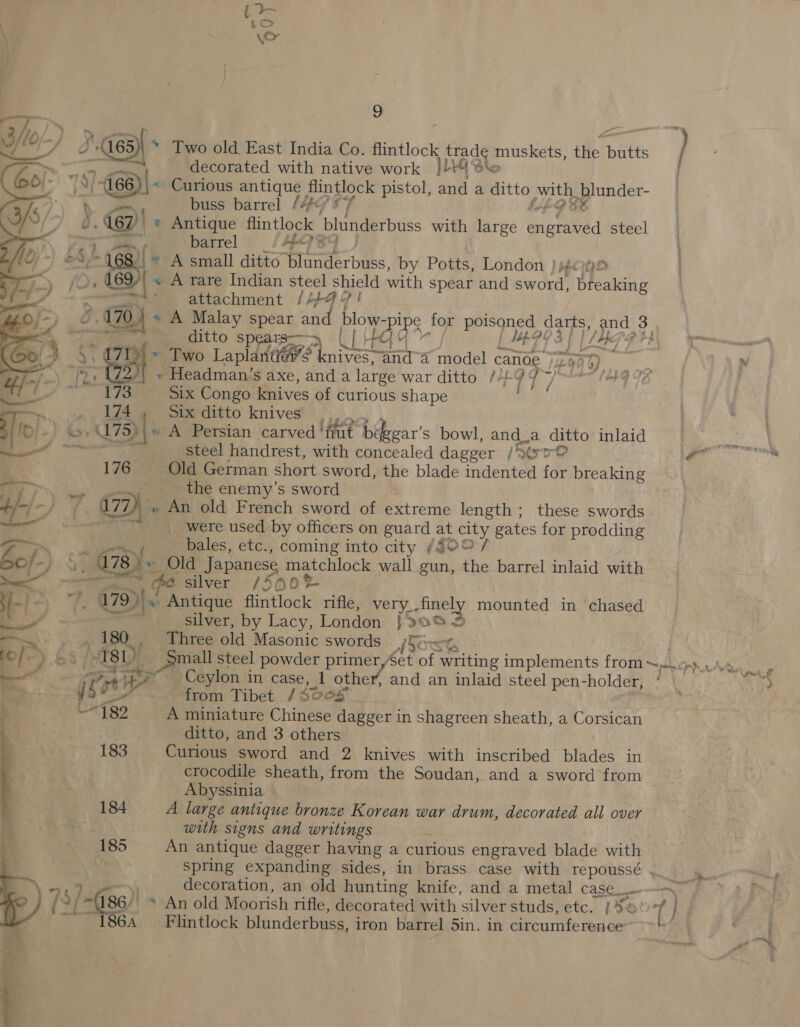 9
165 Two old East India Co. flintlock trade muskets, the butts
decorated with native work
166 Curious antique flintlock pistol, and a ditto with blunder-
buss barrel
167 Antique flintlock blunderbuss with large engraved steel
barrel
168 A small ditto blunderbuss, by Potts, London
169 A rare Indian steel shield with spear and sword, breaking
attachment
170 A Malay spear and blow-pipe for poisoned darts, and 3
ditto spears
171 Two Laplander's knives, and a model canoe
172 Headman's axe, and a large war ditto
173 Six Congo knives of curious shape
174 Six ditto knives
175 A Persian carved fruit beggar's bowl, and a ditto inlaid
steel handrest, with concealed dagger
176 Old German short sword, the blade indented for breaking
the enemy's sword
177 An old French sword of extreme length; these swords
were used by officers on guard at city gates for prodding
bales, etc., coming into city
178 Old Japanese matchlock wall gun, the barrel inlaid with
silver
179 Antique flintlock rifle, very finely mounted in chased
silver, by Lacy, London
180 Three old Masonic swords
181 Small steel powder primer, set of writing implements from
Ceylon in case, 1 other, and an inlaid steel pen-holder,
from Tibet
182 A miniature Chinese dagger in shagreen sheath, a Corsican
ditto, and 3 others
183 Curious sword and 2 knives with inscribed blades in
crocodile sheath, from the Soudan, and a sword from
Abyssinia
184 A large antique bronze Korean war drum, decorated all over
with signs and writings
185 An antique dagger having a curious engraved blade with
spring expanding sides, in brass case with repoussé
decoration, an old hunting knife, and a metal case
186 An old Moorish rifle, decorated with silver studs, etc.
186A Flintlock blunderbuss, iron barrel 5in. in circumference